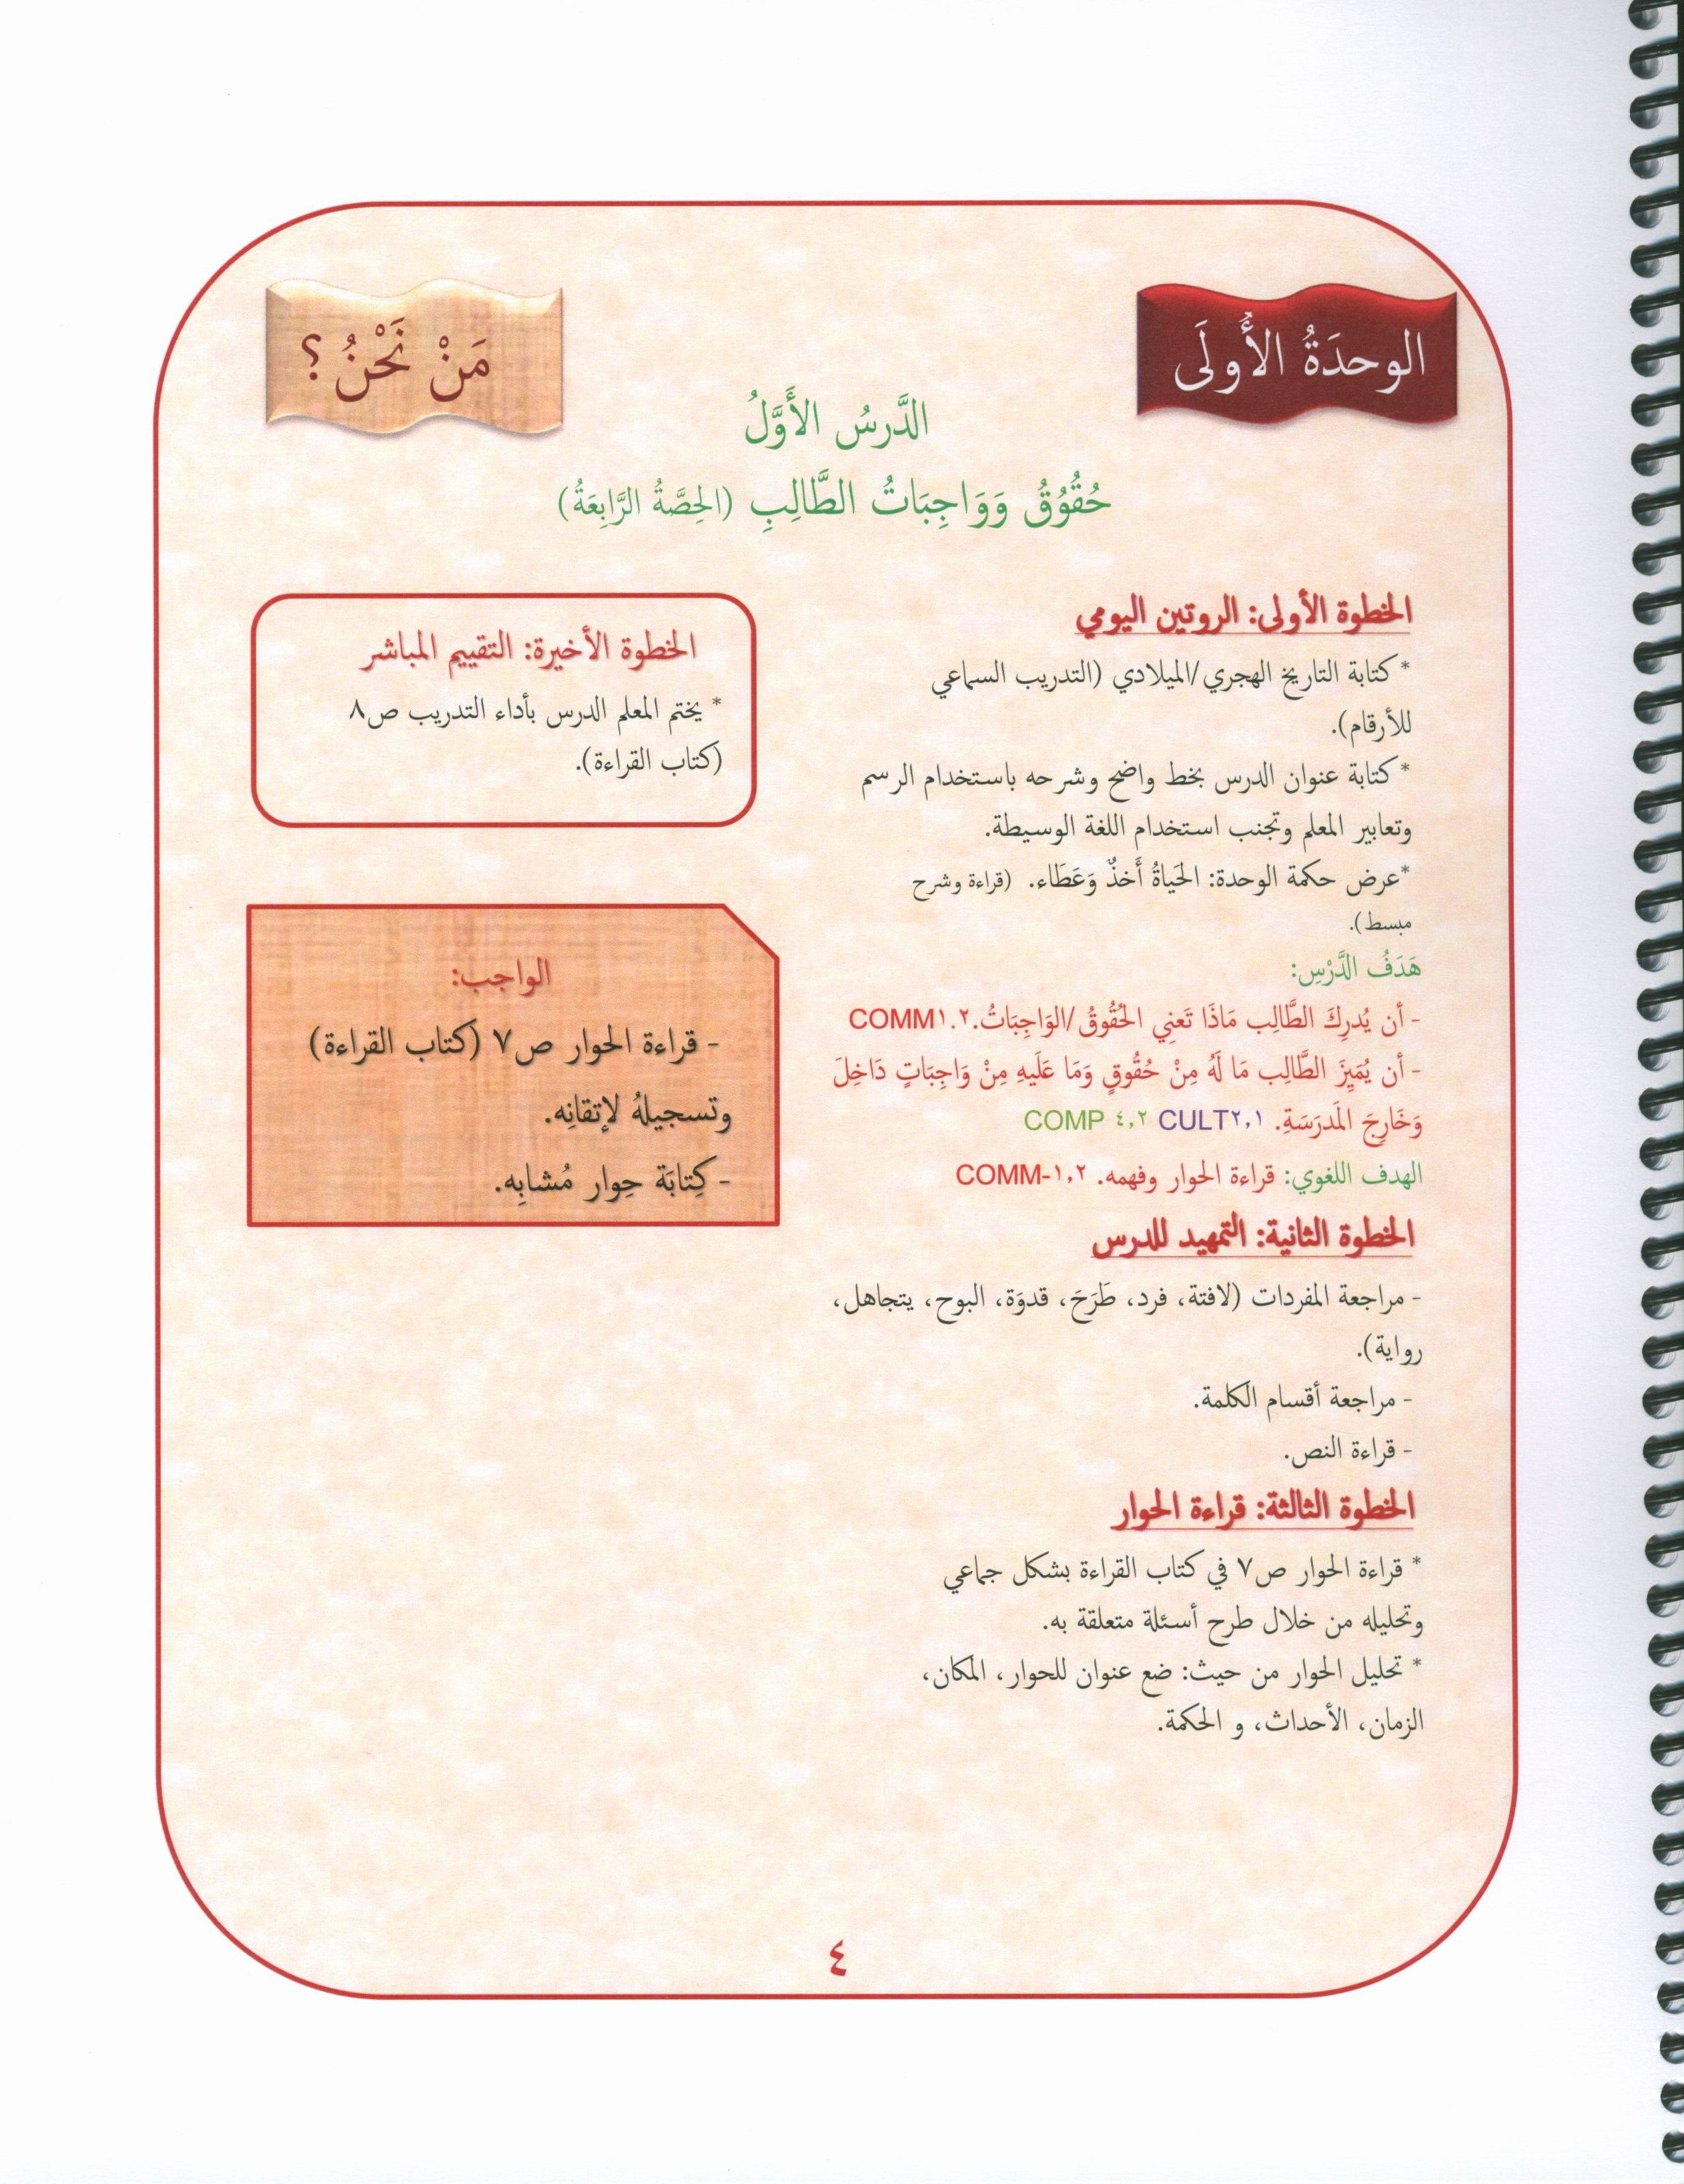 الوحدَةُ الأُولَى
مَنْ نَحْنُ ؟
الدَّرسُ الأَوَّلُ
حُقُوُقُ وَوَاجِبَاتُ الطَّالِبِ (الحِصَّةُ الرَّابِعَةُ)
الخطوة الأولى: الروتين اليومي
* كتابة التاريخ الهجري/الميلادي (التدريب السماعي
للأرقام).
* كتابة عنوان الدرس بخط واضح وشرحه باستخدام الرسم
وتعابير المعلم وتجنب استخدام اللغة الوسيطة.
*عرض حكمة الوحدة: الحَياةُ أَخذٌ وَعَطَاء. (قراءة وشرح
مبسط).
هَدَفُ الدَّرْسِ:
- أن يُدرِكَ الطَّالِب مَاذَا تَعنِي الحُقُوقُ/الوَاجِبَاتُ.COMM١.٢
- أن يُمَيِزَ الطَّالِب مَا لَهُ مِنْ حُقُوقٍ وَمَا عَلَيهِ مِنْ وَاجِبَاتٍ دَاخِلَ
وَخَارِجَ المَدرَسَةِ. CULT٢,١ COMP ٤,٢
الهدف اللغوي: قراءة الحوار وفهمه. COMM-١,٢
الخطوة الثانية: التمهيد للدرس
- مراجعة المفردات (لافتة، فرد، طَرَحَ، قدوَة، البوح، يتجاهل،
رواية).
- مراجعة أقسام الكلمة.
- قراءة النص.
الخطوة الثالثة: قراءة الحوار
* قراءة الحوار ص٧ في كتاب القراءة بشكل جماعي
وتحليله من خلال طرح أسئلة متعلقة به.
* تحليل الحوار من حيث: ضع عنوان للحوار، المكان،
الزمان، الأحداث، و الحكمة.
الخطوة الأخيرة: التقييم المباشر
* يختم المعلم الدرس بأداء التدريب ص٨
(كتاب القراءة).
الواجب:
- قراءة الحوار ص٧ (كتاب القراءة)
وتسجيلهُ لإتقانِه.
- كِتابَة حِوار مُشابِه.
٤